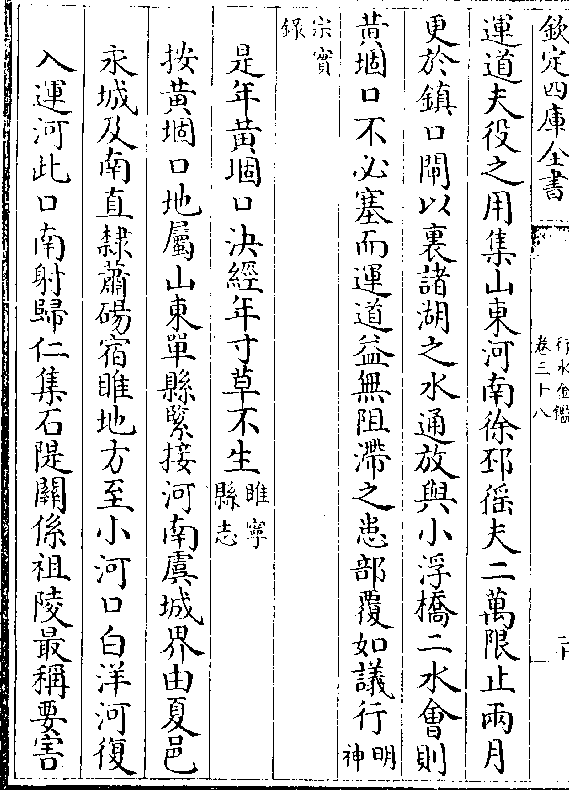 欽定四庫全書
行水金鑑
卷三十八
運道夫役之用集山東河南徐邳徭夫二萬限止兩月
更於鎮口閘以裏諸湖之水通放與小浮橋二水會則
黄堌口不必塞而運道益無阻滯之患部覆如議行明神
宗實
録
是年黄堌口決經年寸草不生睢寧縣志
按黄堌口地屬山東單縣緊接河南虞城界由夏邑
永城及南直隸蕭碭宿睢地方至小河口白洋河復
入運河此口南射歸仁集石隄關係祖陵最稱要害